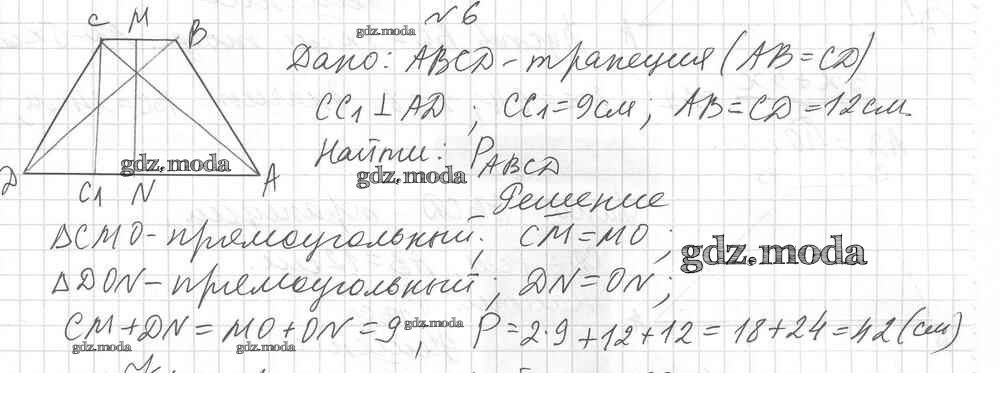 № 6
C M B
gdz.moda
Дано: ABCD - трапеция (AB = CD)
CC1 ⊥ AD ; CC1 = 9 см ; AB = CD = 12 см.
Найти: P ABCD
gdz.moda
gdz.moda
Д C1 N A
Решение
ΔCMO - прямоугольный; CM = MO ;
gdz.moda
ΔDON - прямоугольный ; DN = ON ;
CM + DN = MO + ON = 9 ; P = 2·9 + 12 + 12 = 18 + 24 = 42 (см)
gdz.moda
gdz.moda gdz.moda